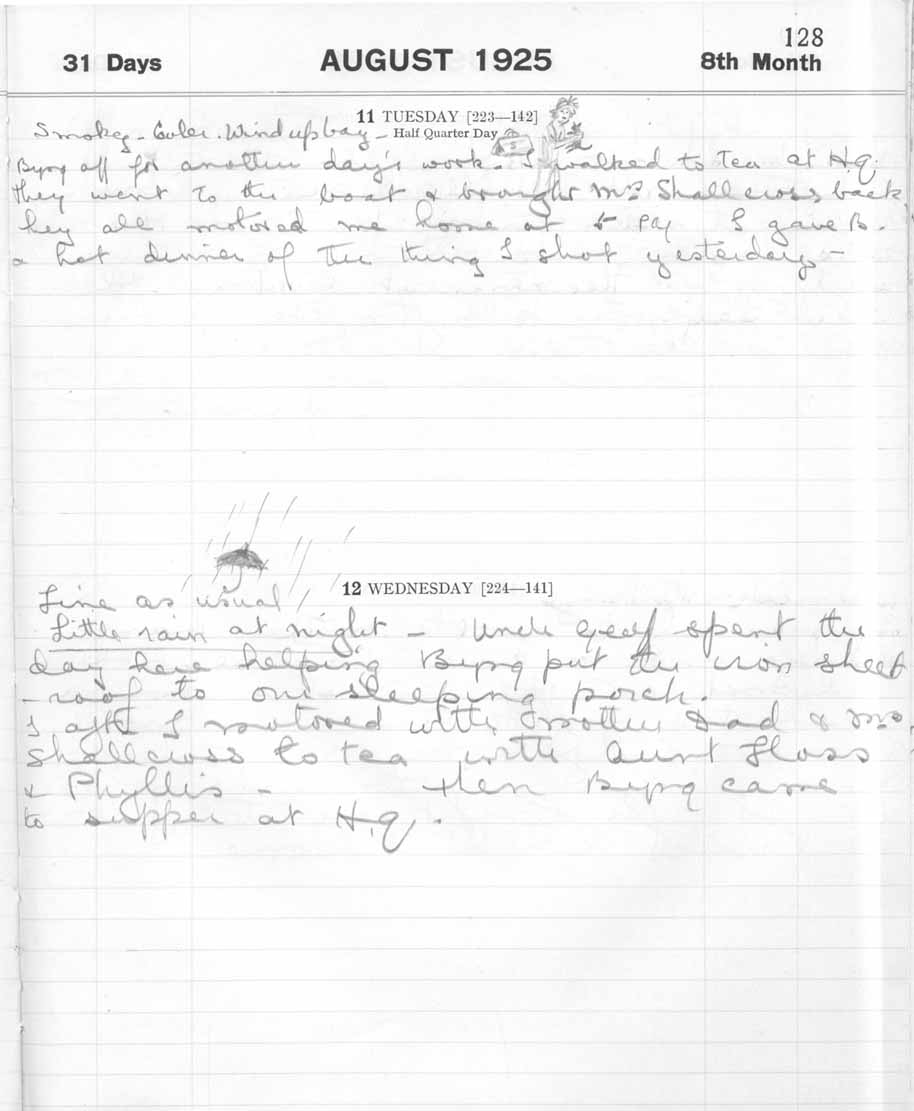 128
31 Days AUGUST 1925 8th Month
11 TUESDAY [223—142]
Smokey - Cooler. Wind up bay - Half Quarter Day
Byng off for another day's work. I walked to Tea at H.Q.
they went to the boat & brought Mrs Shallcross back
hey all motored me home at 5 pm I gave B.
a hot dinner of the thing I shot yesterday -
12 WEDNESDAY [224—141]
Fine as usual
Little rain at night - Uncle Geoff spent the
day here helping Byng put the iron sheet
-roof to our sleeping porch.
I aft I motored with Mother Dad & Mrs
Shallcross to tea with Aunt Floss
& Phyllis - then Byng came
to supper at H.Q.